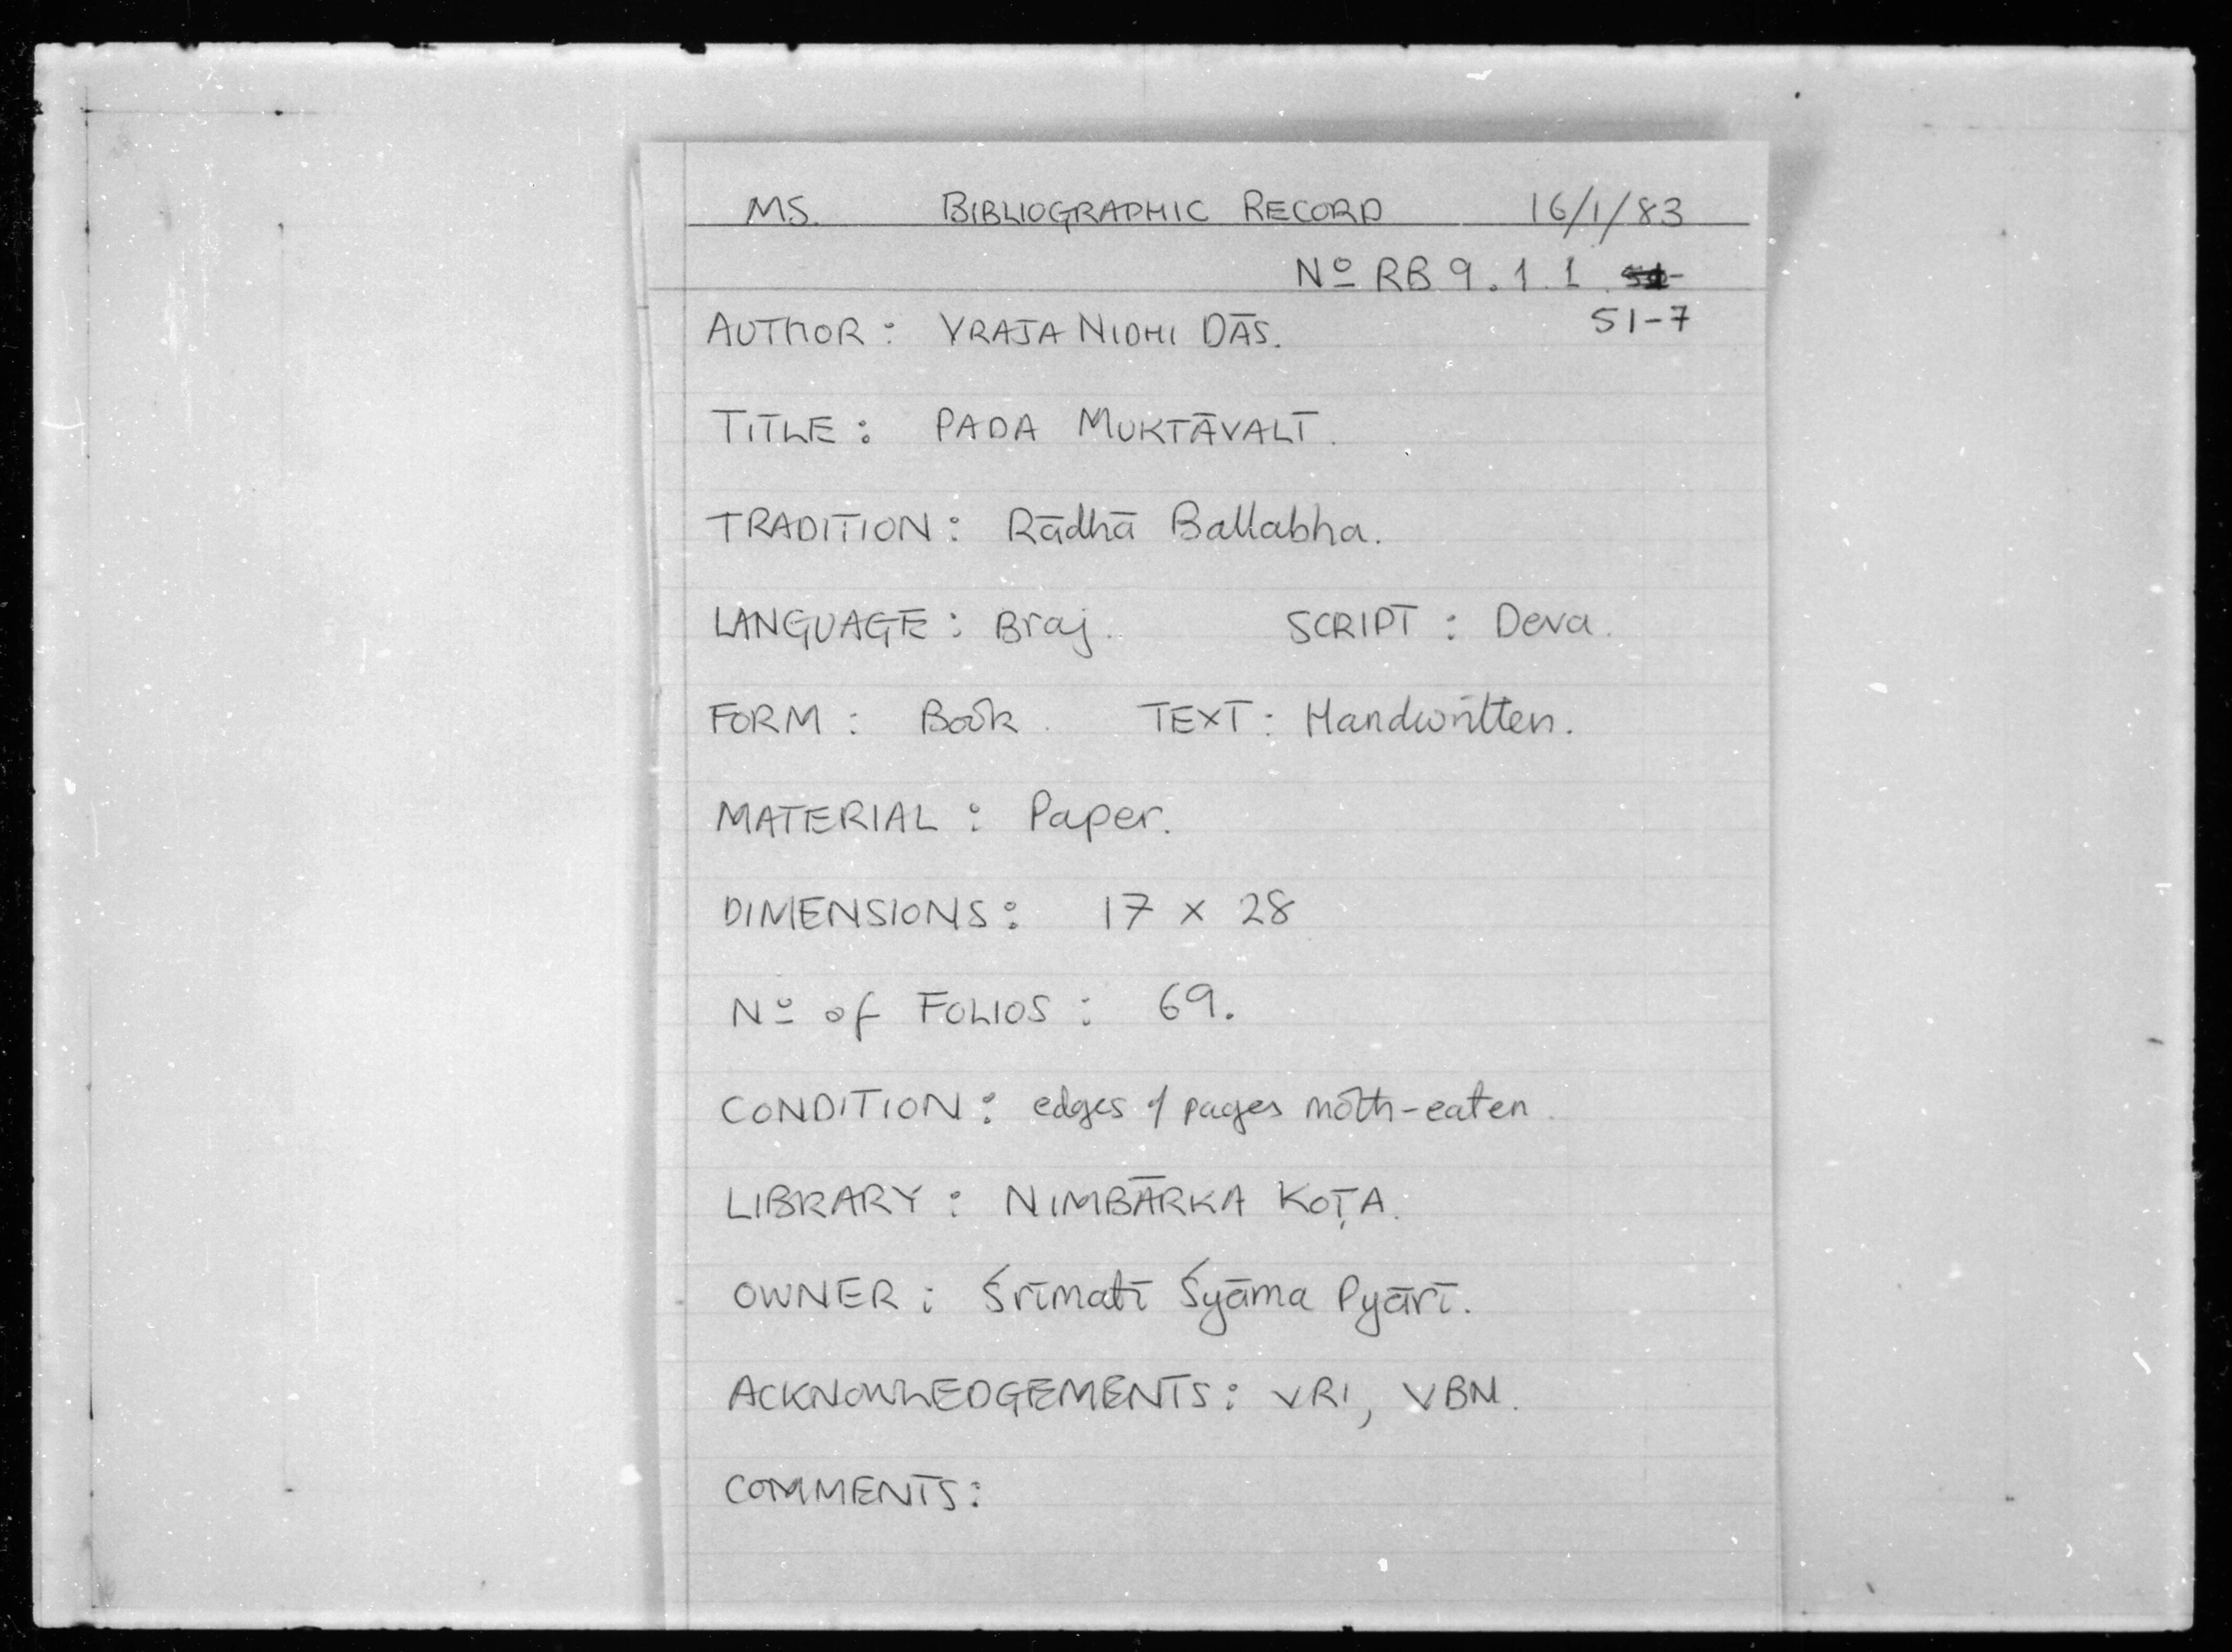 MS. BIBLIOGRAPHIC RECORD 16/1/83
No RB 9.1.1
51-7
AUTHOR: VRAJA NIDHI DĀS.
TITLE: PADA MUKTĀVALĪ.
TRADITION: Rādhā Ballabha.
LANGUAGE: Braj. SCRIPT: Deva.
FORM: Book. TEXT: Handwritten.
MATERIAL: Paper.
DIMENSIONS: 17 x 28
No of FOLIOS: 69.
CONDITION: edges of pages moth-eaten.
LIBRARY: NIMBĀRKA KOṬA.
OWNER: Śrīmatī Śyāma Pyārī.
ACKNOWLEDGEMENTS: VRI, VBN.
COMMENTS: